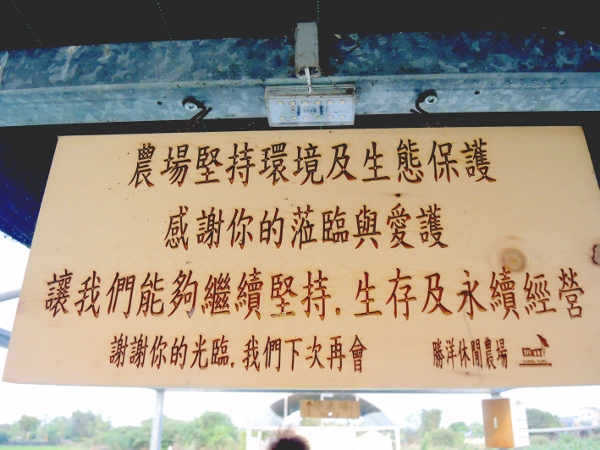 農場堅持環境及生態保護
感謝你的蒞臨與愛護
讓我們能夠繼續堅持.生存及永續經營
謝謝你的光臨.我們下次再會 勝洋休閒農場